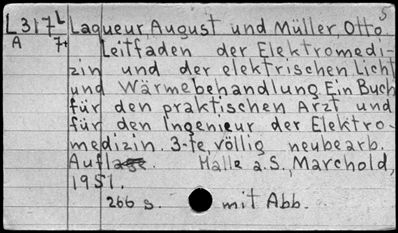 5
L317L Laqueur, August und Müller, Otto
A 7+ Leitfaden der Elektromedi-
zin und der elektrischen Licht
und Wärmebehandlung Ein Buch
für den praktischen Arzt und
für den Ingenieur der Elektro-
medizin. 3-te, völlig neubearb.
Auflage. Halle a.S., Marchold,
1951.
266 s. mit Abb.